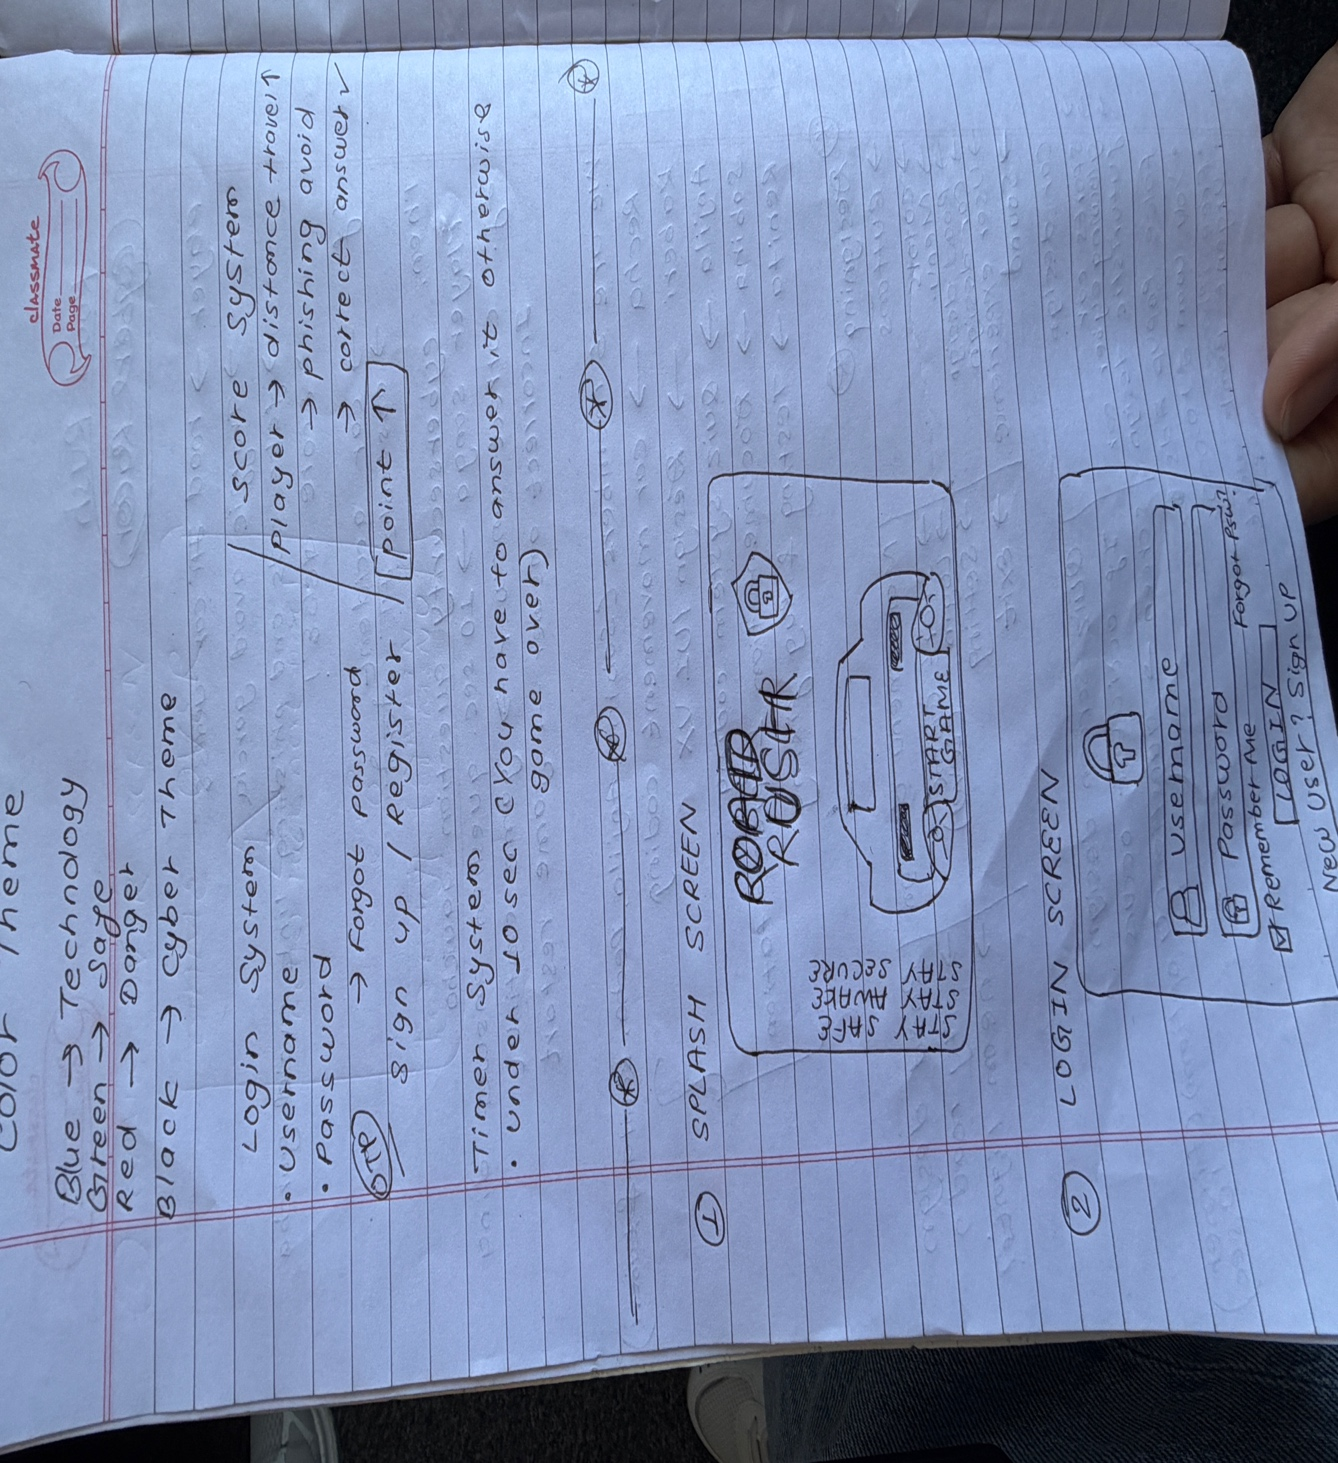 classmate
Date
Page
Color Theme
Blue → Technology
Green → Safe
Red → Danger
Black → Cyber Theme
Login System
• Username
• Password
OTP → Forgot password
Sign up / Register
Score System
Player → distance travel ↑
→ phishing avoid
→ correct answer ✓
point ↑
Timer System
• Under 10 sec (You have to answer it otherwise
game over)
① SPLASH SCREEN
ROAD
RUSH
STAY SAFE
STAY AWAKE
STAY SECURE
START
GAME
② LOGIN SCREEN
Username
Password
Remember Me
Forgot Psw?
LOGIN
New User? Sign UP